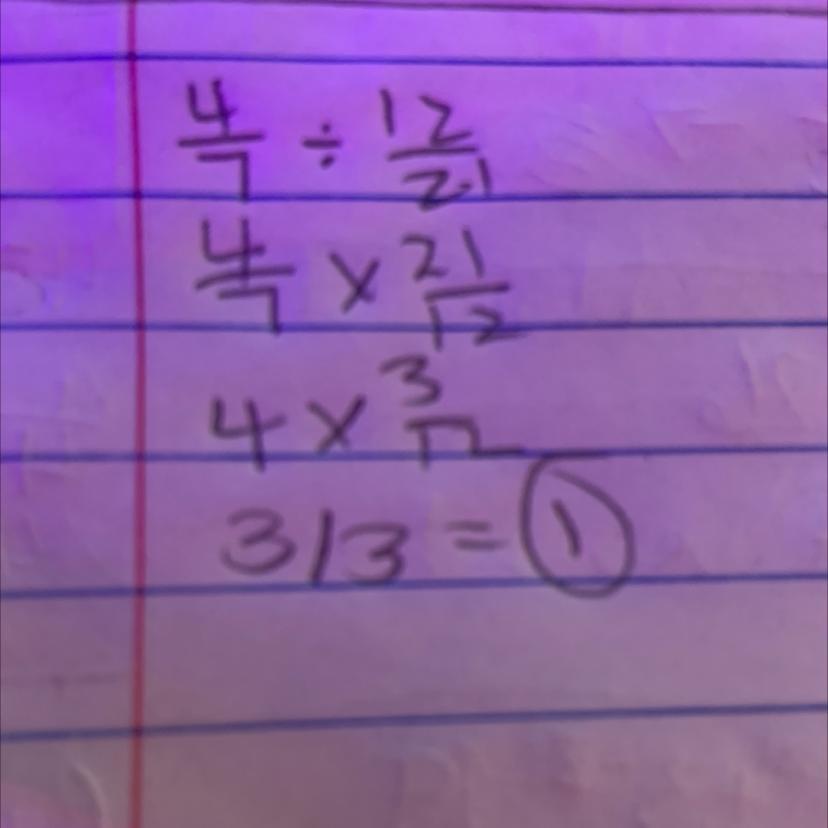 4/7 ÷ 12/21
4/7 × 21/12
4 × 3/12
3/3 = 1